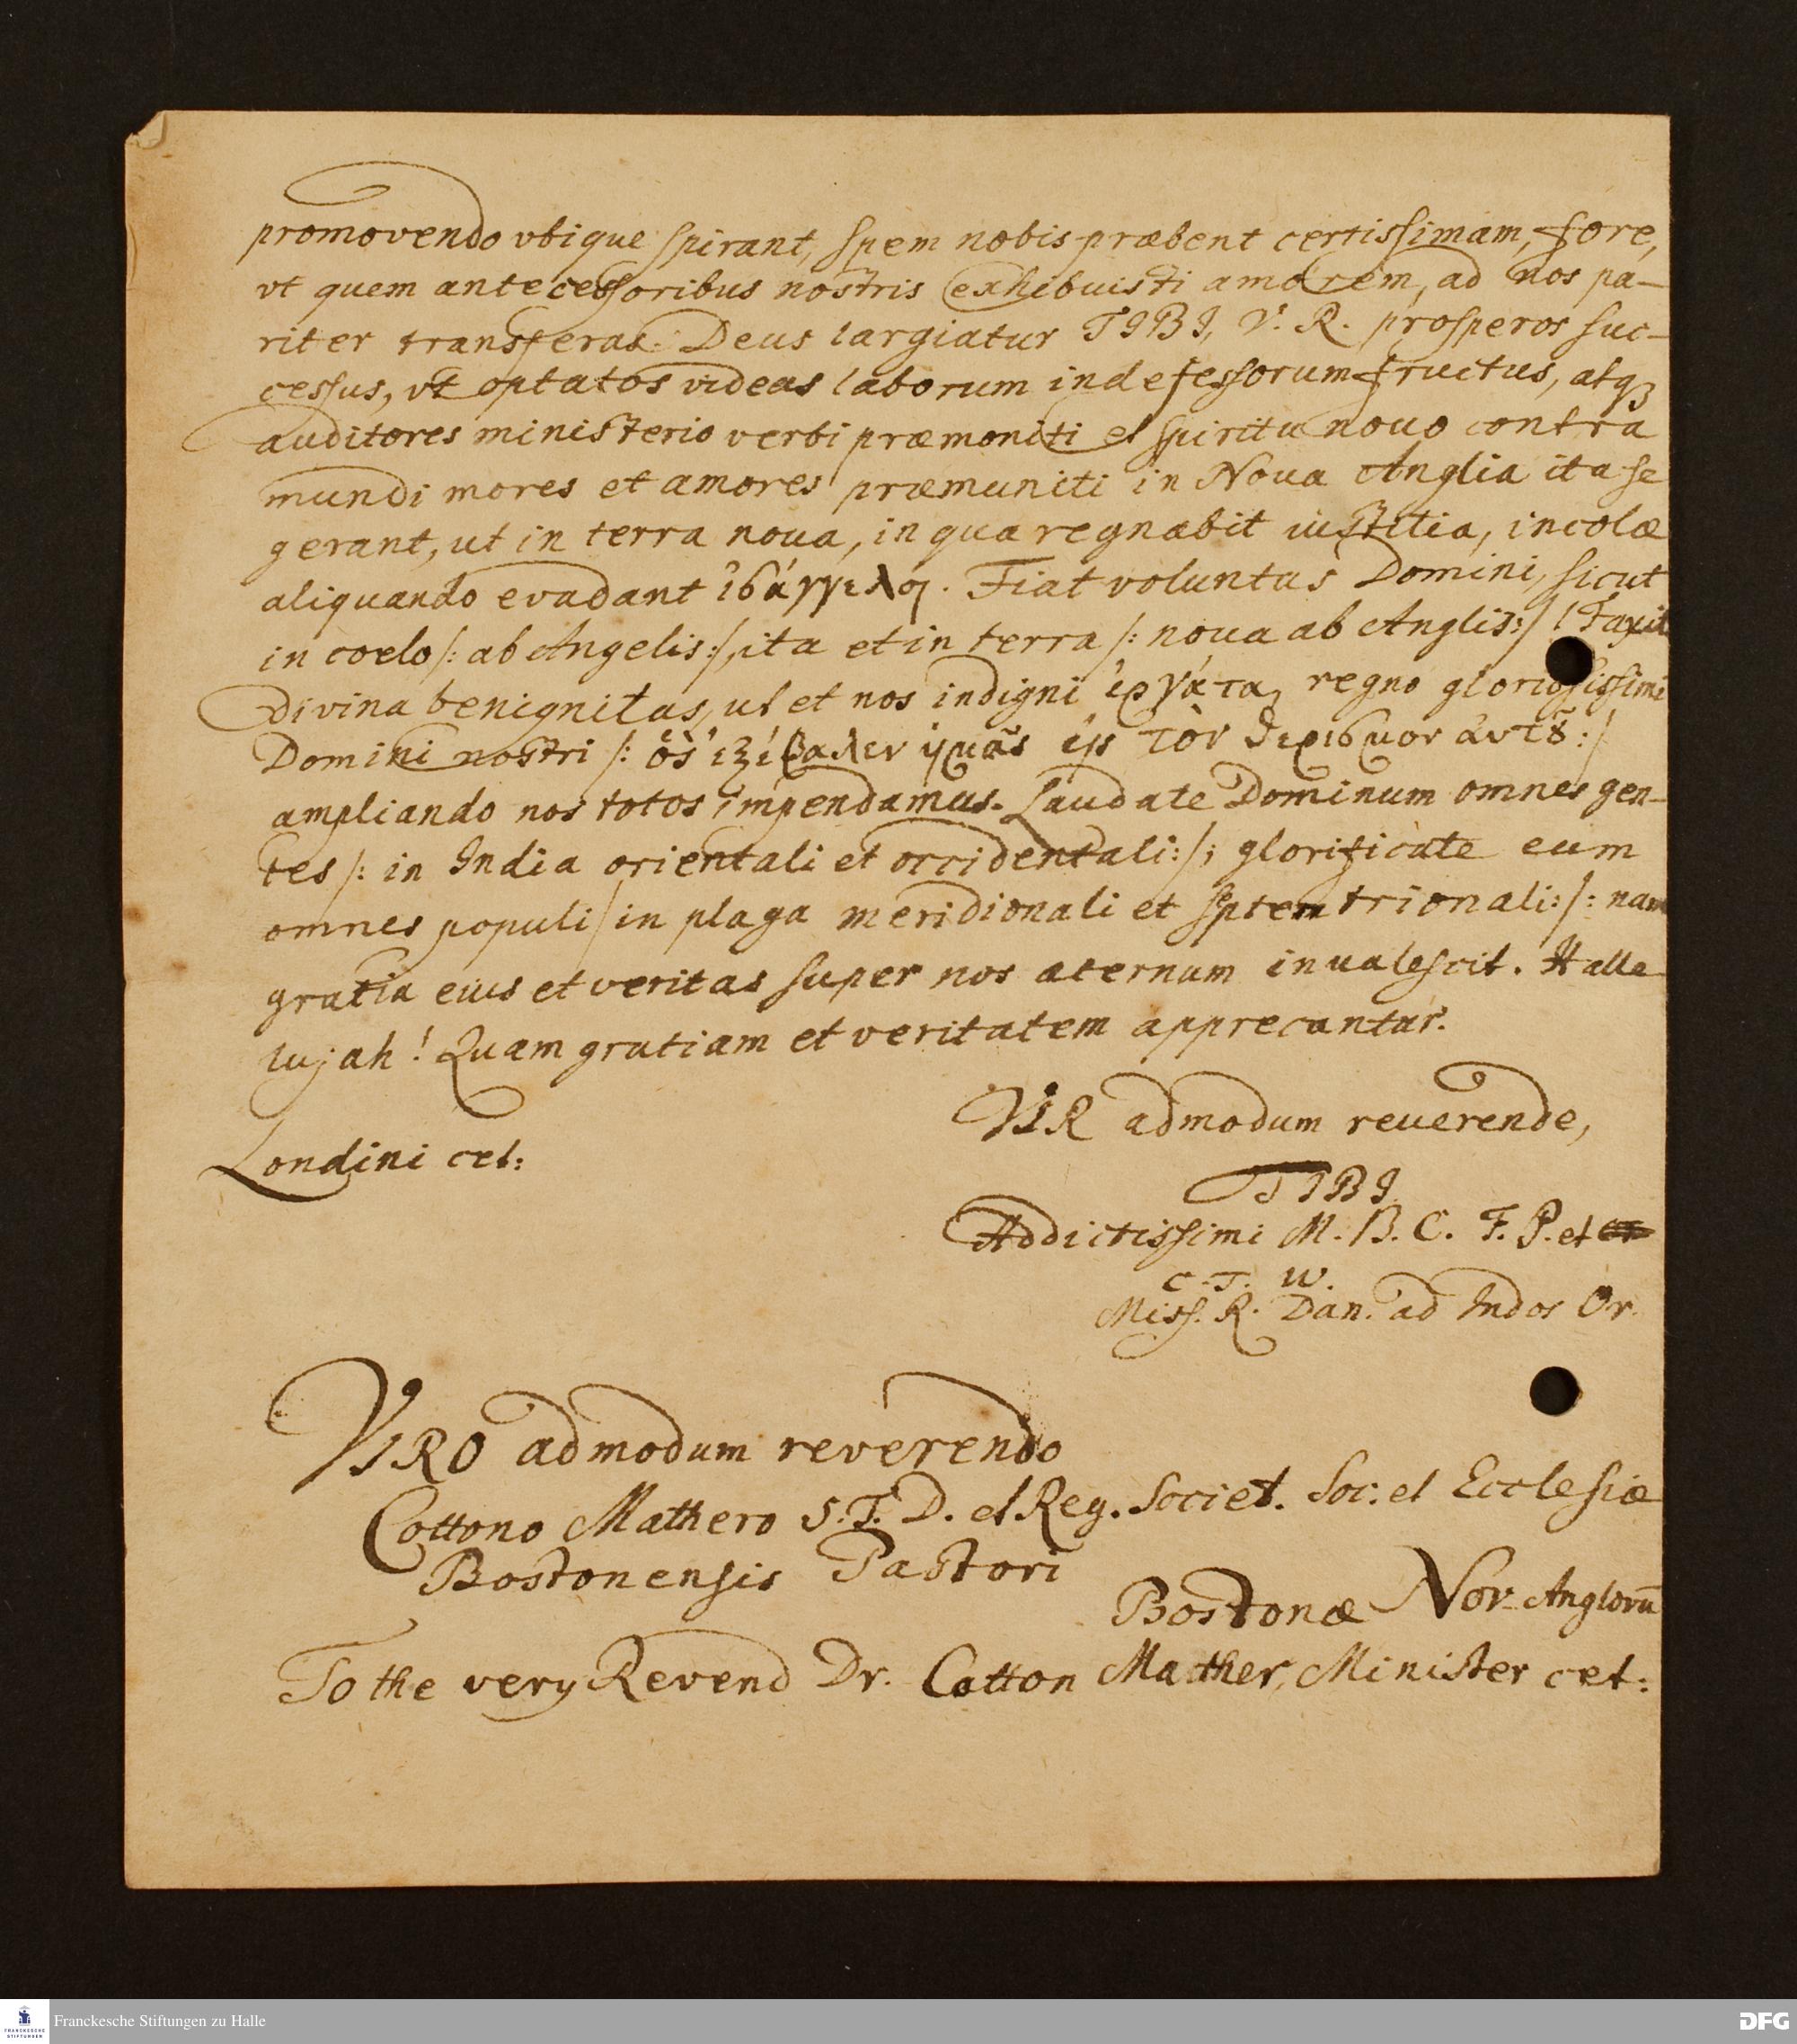 promovendo vbique spirant, spem nobis præbent certissimam, fore,
vt quem antecessoribus nostris exhibuisti amorem, ad nos pa-
riter transferas. Deus largiatur TIBI, V. R. prosperos suc-
cessus, vt optatos videas laborum indefessorum fructus, atq
auditores ministerio verbi præmoniti et spiritu nouo contra
mundi mores et amores præmuniti in Noua Anglia ita se
gerant, ut in terra noua, in qua regnabit iustitia, incolæ
aliquando evadant ἰσάγγελοι. Fiat voluntas Domini, sicut
in coelo /: ab Angelis :/, ita et in terra /: noua ab Anglis :/ ! Faxit
Divina benignitas, ut et nos indigni ἐργάται regno gloriosissimi
Domini nostri /: ὃς ἐξέβαλεν ἡμᾶς εἰς τὸν θερισμον ἀυτȣ͂ :/
ampliando nos totos impendamus. Laudate Dominum omnes gen-
tes /: in India orientali et occidentali :/; glorificate eum
omnes populi / in plaga meridionali et septemtrionali :/: nam
gratia eius et veritas super nos æternum inualescit. Halle
lujah! Quam gratiam et veritatem apprecantur.
VIR admodum reuerende,
Londini cet:
TIBI
Addictissimi M. B. C. F. P. et
C. T. W.
Miss. R. Dan. ad Indos Or.
VIRO admodum reverendo
Cottono Mathero S. T. D. et Reg. Societ. Soc. et Ecclesiæ
Bostonensis Pastori
Bostonæ Nov-Anglorū
To the very Revend Dr. Cotton Mather, Minister cet:
FRANCKESCHE STIFTUNGEN
Franckesche Stiftungen zu Halle
DFG